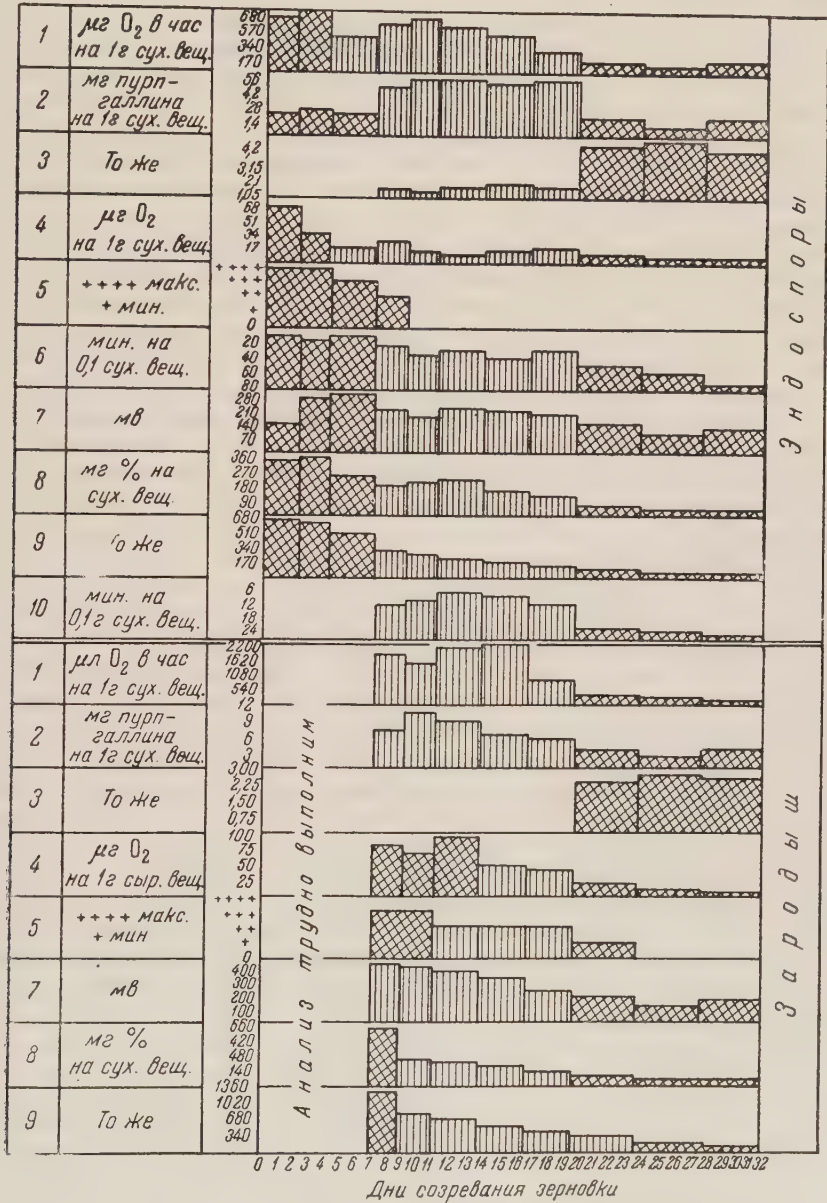 1
μг O₂ в час
на 1г сух. вещ.
680
570
340
170
2
мг пурп-
галлина
на 1г сух. вещ.
56
4,2
28
1,4
3
То же
4,2
3,15
21
1,05
4
μг O₂
на 1г сух. вещ.
68
51
34
17
5
++++ макс.
+ мин.
++++
+++
++
+
0
6
мин. на
0,1 сух. вещ.
20
40
60
80
7
мв
280
210
140
70
8
мг % на
сух. вещ.
360
270
180
90
9
То же
680
510
340
170
10
мин. на
0,1г сух. вещ.
6
12
18
24
Эндоспоры
1
μл O₂ в час
на 1г сух. вещ.
2200
1620
1080
540
2
мг пурп-
галлина
на 1г сух. вещ.
12
9
6
3
3
То же
3,00
2,25
1,50
0,75
4
μг O₂
на 1г сыр. вещ.
100
75
50
25
5
++++ макс.
+ мин
++++
+++
++
+
0
7
мв
400
300
200
100
8
мг %
на сух. вещ.
660
420
480
140
9
То же
1360
1020
680
340
Анализ трудно выполним
Зародыш
0 1 2 3 4 5 6 7 8 9 10 11 12 13 14 15 16 17 18 19 20 21 22 23 24 25 26 27 28 29 30 31 32
Дни созревания зерновки